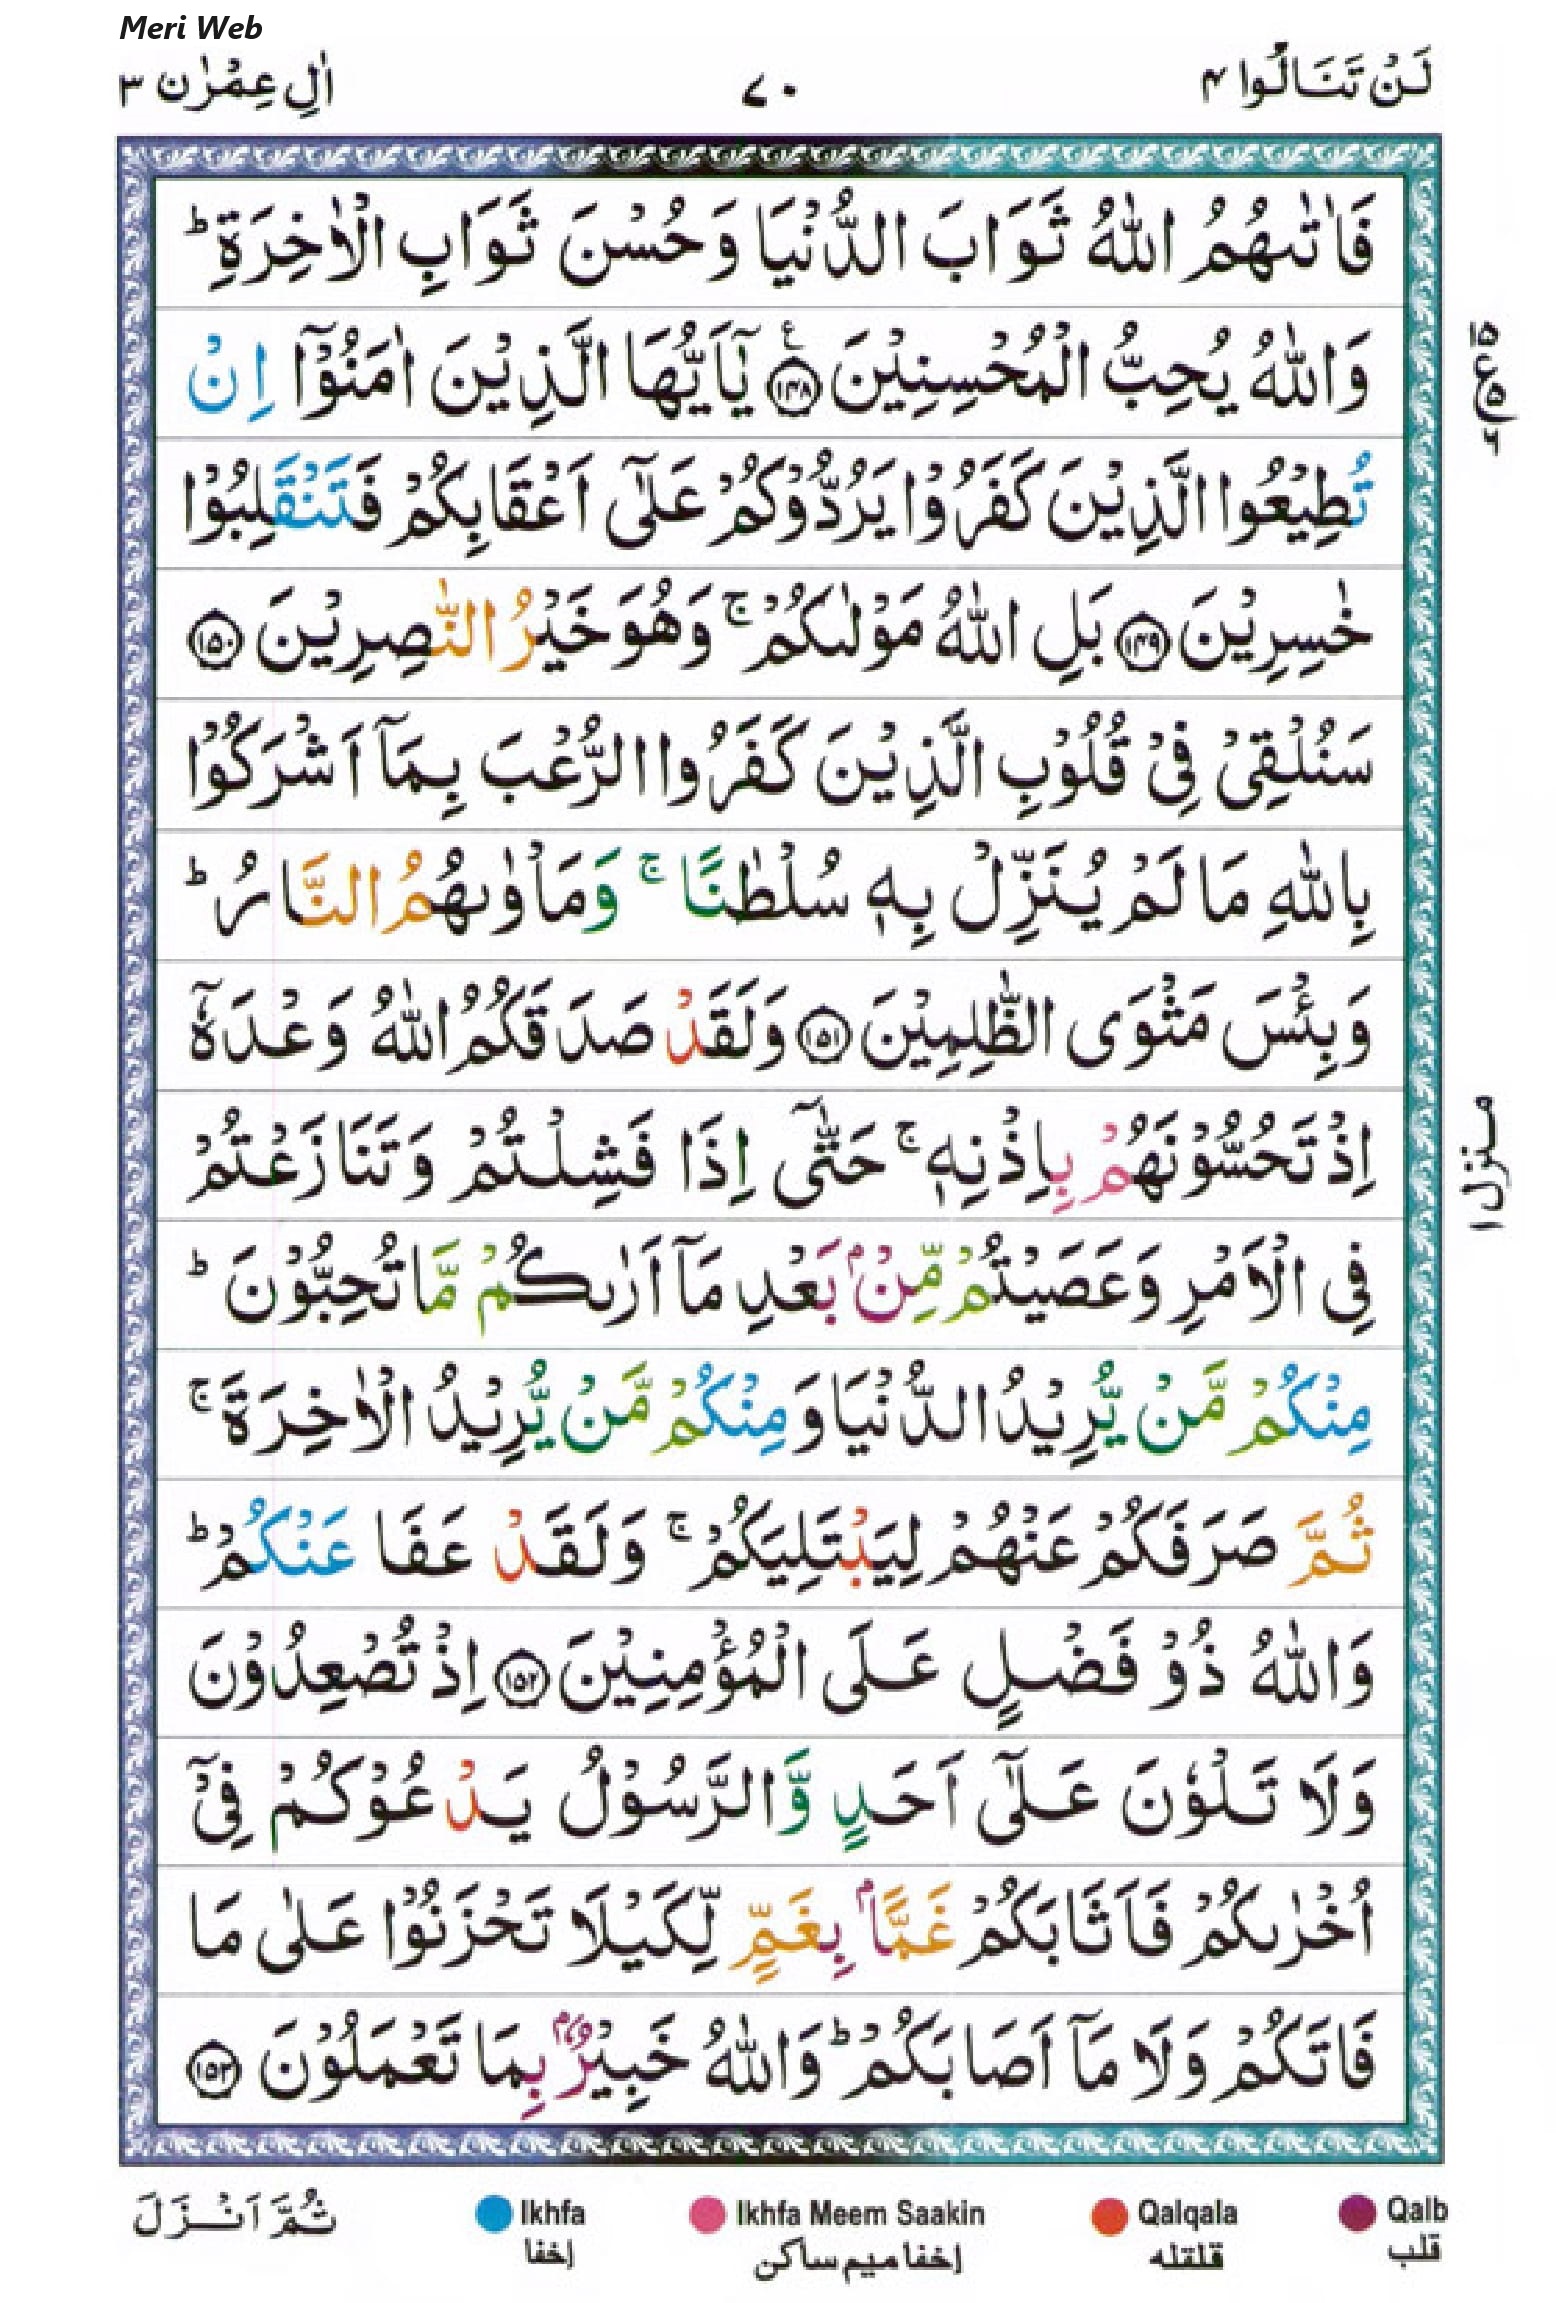 Meri Web
لَنْ تَنَالُوا ۴
۷۰
اٰلِ عِمْرٰن ۳
فَاٰتٰىهُمُ اللّٰهُ ثَوَابَ الدُّنْيَا وَحُسْنَ ثَوَابِ الْاٰخِرَةِ ؕ
وَاللّٰهُ يُحِبُّ الْمُحْسِنِيْنَ ۝۱۴۸ ع يٰۤاَيُّهَا الَّذِيْنَ اٰمَنُوْۤا اِنْ
تُطِيْعُوا الَّذِيْنَ كَفَرُوْا يَرُدُّوْكُمْ عَلٰۤى اَعْقَابِكُمْ فَتَنْقَلِبُوْا
خٰسِرِيْنَ ۝۱۴۹ بَلِ اللّٰهُ مَوْلٰىكُمْ ۚ وَهُوَ خَيْرُ النّٰصِرِيْنَ ۝۱۵۰
سَنُلْقِىْ فِىْ قُلُوْبِ الَّذِيْنَ كَفَرُوا الرُّعْبَ بِمَاۤ اَشْرَكُوْا
بِاللّٰهِ مَا لَمْ يُنَزِّلْ بِهٖ سُلْطٰنًا ۚ وَمَاْوٰىهُمُ النَّارُ ؕ
وَبِئْسَ مَثْوَى الظّٰلِمِيْنَ ۝۱۵۱ وَلَقَدْ صَدَقَكُمُ اللّٰهُ وَعْدَهٗۤ
اِذْ تَحُسُّوْنَهُمْ بِاِذْنِهٖ ۚ حَتّٰۤى اِذَا فَشِلْتُمْ وَتَنَازَعْتُمْ
فِى الْاَمْرِ وَعَصَيْتُمْ مِّنْۢ بَعْدِ مَاۤ اَرٰىكُمْ مَّا تُحِبُّوْنَ ؕ
مِنْكُمْ مَّنْ يُّرِيْدُ الدُّنْيَا وَمِنْكُمْ مَّنْ يُّرِيْدُ الْاٰخِرَةَ ۚ
ثُمَّ صَرَفَكُمْ عَنْهُمْ لِيَبْتَلِيَكُمْ ۚ وَلَقَدْ عَفَا عَنْكُمْ ؕ
وَاللّٰهُ ذُوْ فَضْلٍ عَلَى الْمُؤْمِنِيْنَ ۝۱۵۲ اِذْ تُصْعِدُوْنَ
وَلَا تَلْوٗنَ عَلٰۤى اَحَدٍ وَّالرَّسُوْلُ يَدْعُوْكُمْ فِىْۤ
اُخْرٰىكُمْ فَاَثَابَكُمْ غَمًّاۢ بِغَمٍّ لِّكَيْلَا تَحْزَنُوْا عَلٰى مَا
فَاتَكُمْ وَلَا مَاۤ اَصَابَكُمْ ؕ وَاللّٰهُ خَبِيْرٌۢ بِمَا تَعْمَلُوْنَ ۝۱۵۳
۱۵
ع
۵
۶
منزل ۱
ثُمَّ اَنْزَلَ
Ikhfa
إخفا
Ikhfa Meem Saakin
إخفا ميم ساكن
Qalqala
قلقله
Qalb
قلب